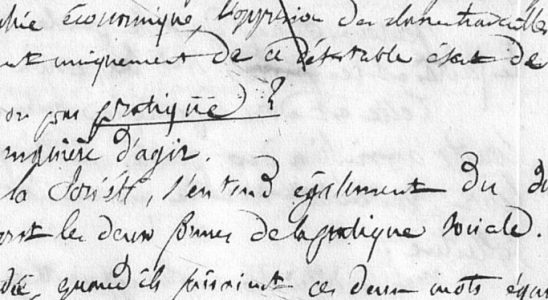 économique, l'oppression des classes travailleuses
uniquement de ce détestable état de
ou pas pratiqué) ?
manière d'agir.
la Société, s'entend également du
les deux formes de la pratique sociale.
quand ils ces deux mots